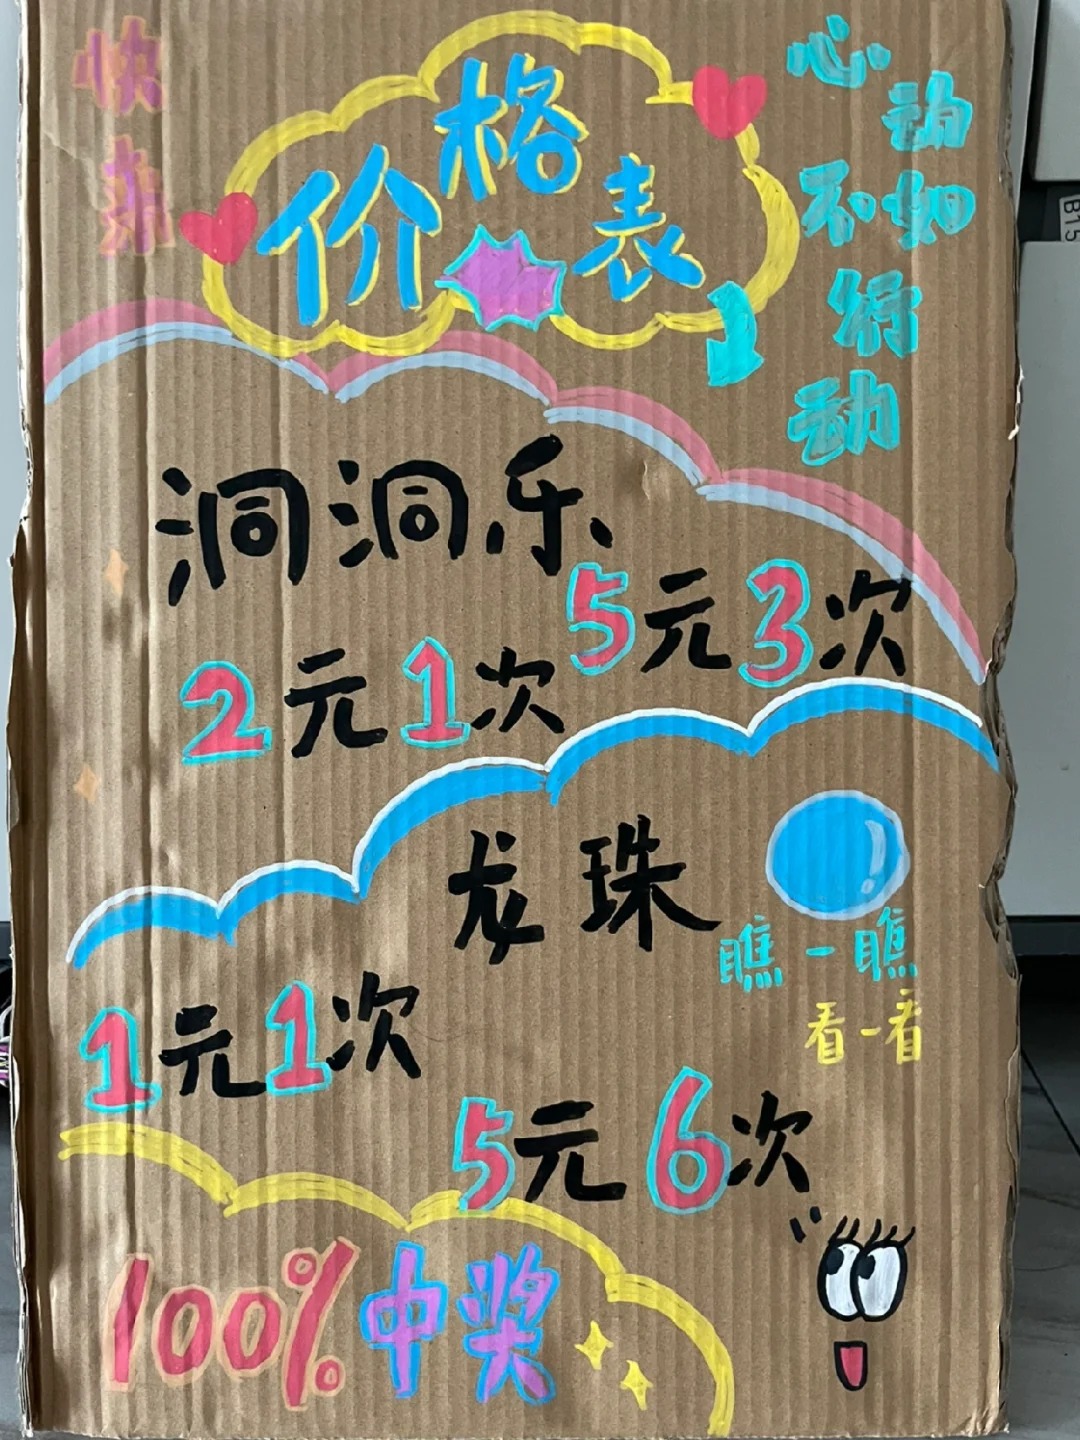 快来
价格表
心动
不如
行
动
洞洞乐
5元3次
2元1次
龙珠
瞧一瞧
看一看
1元1次
5元6次
100%中奖